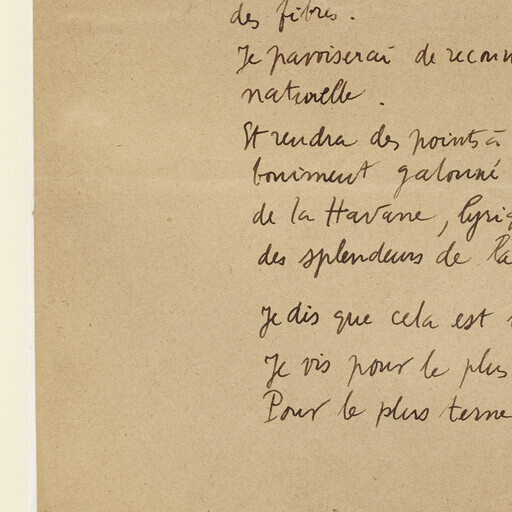 des fibres.
Je pavoiserai de reconn
naturelle.
Et rendra des points à
boniment galonné
de la Havane, lyriq
des splendeurs de
Je dis que cela est
Je vis pour le plus
Pour le plus terne